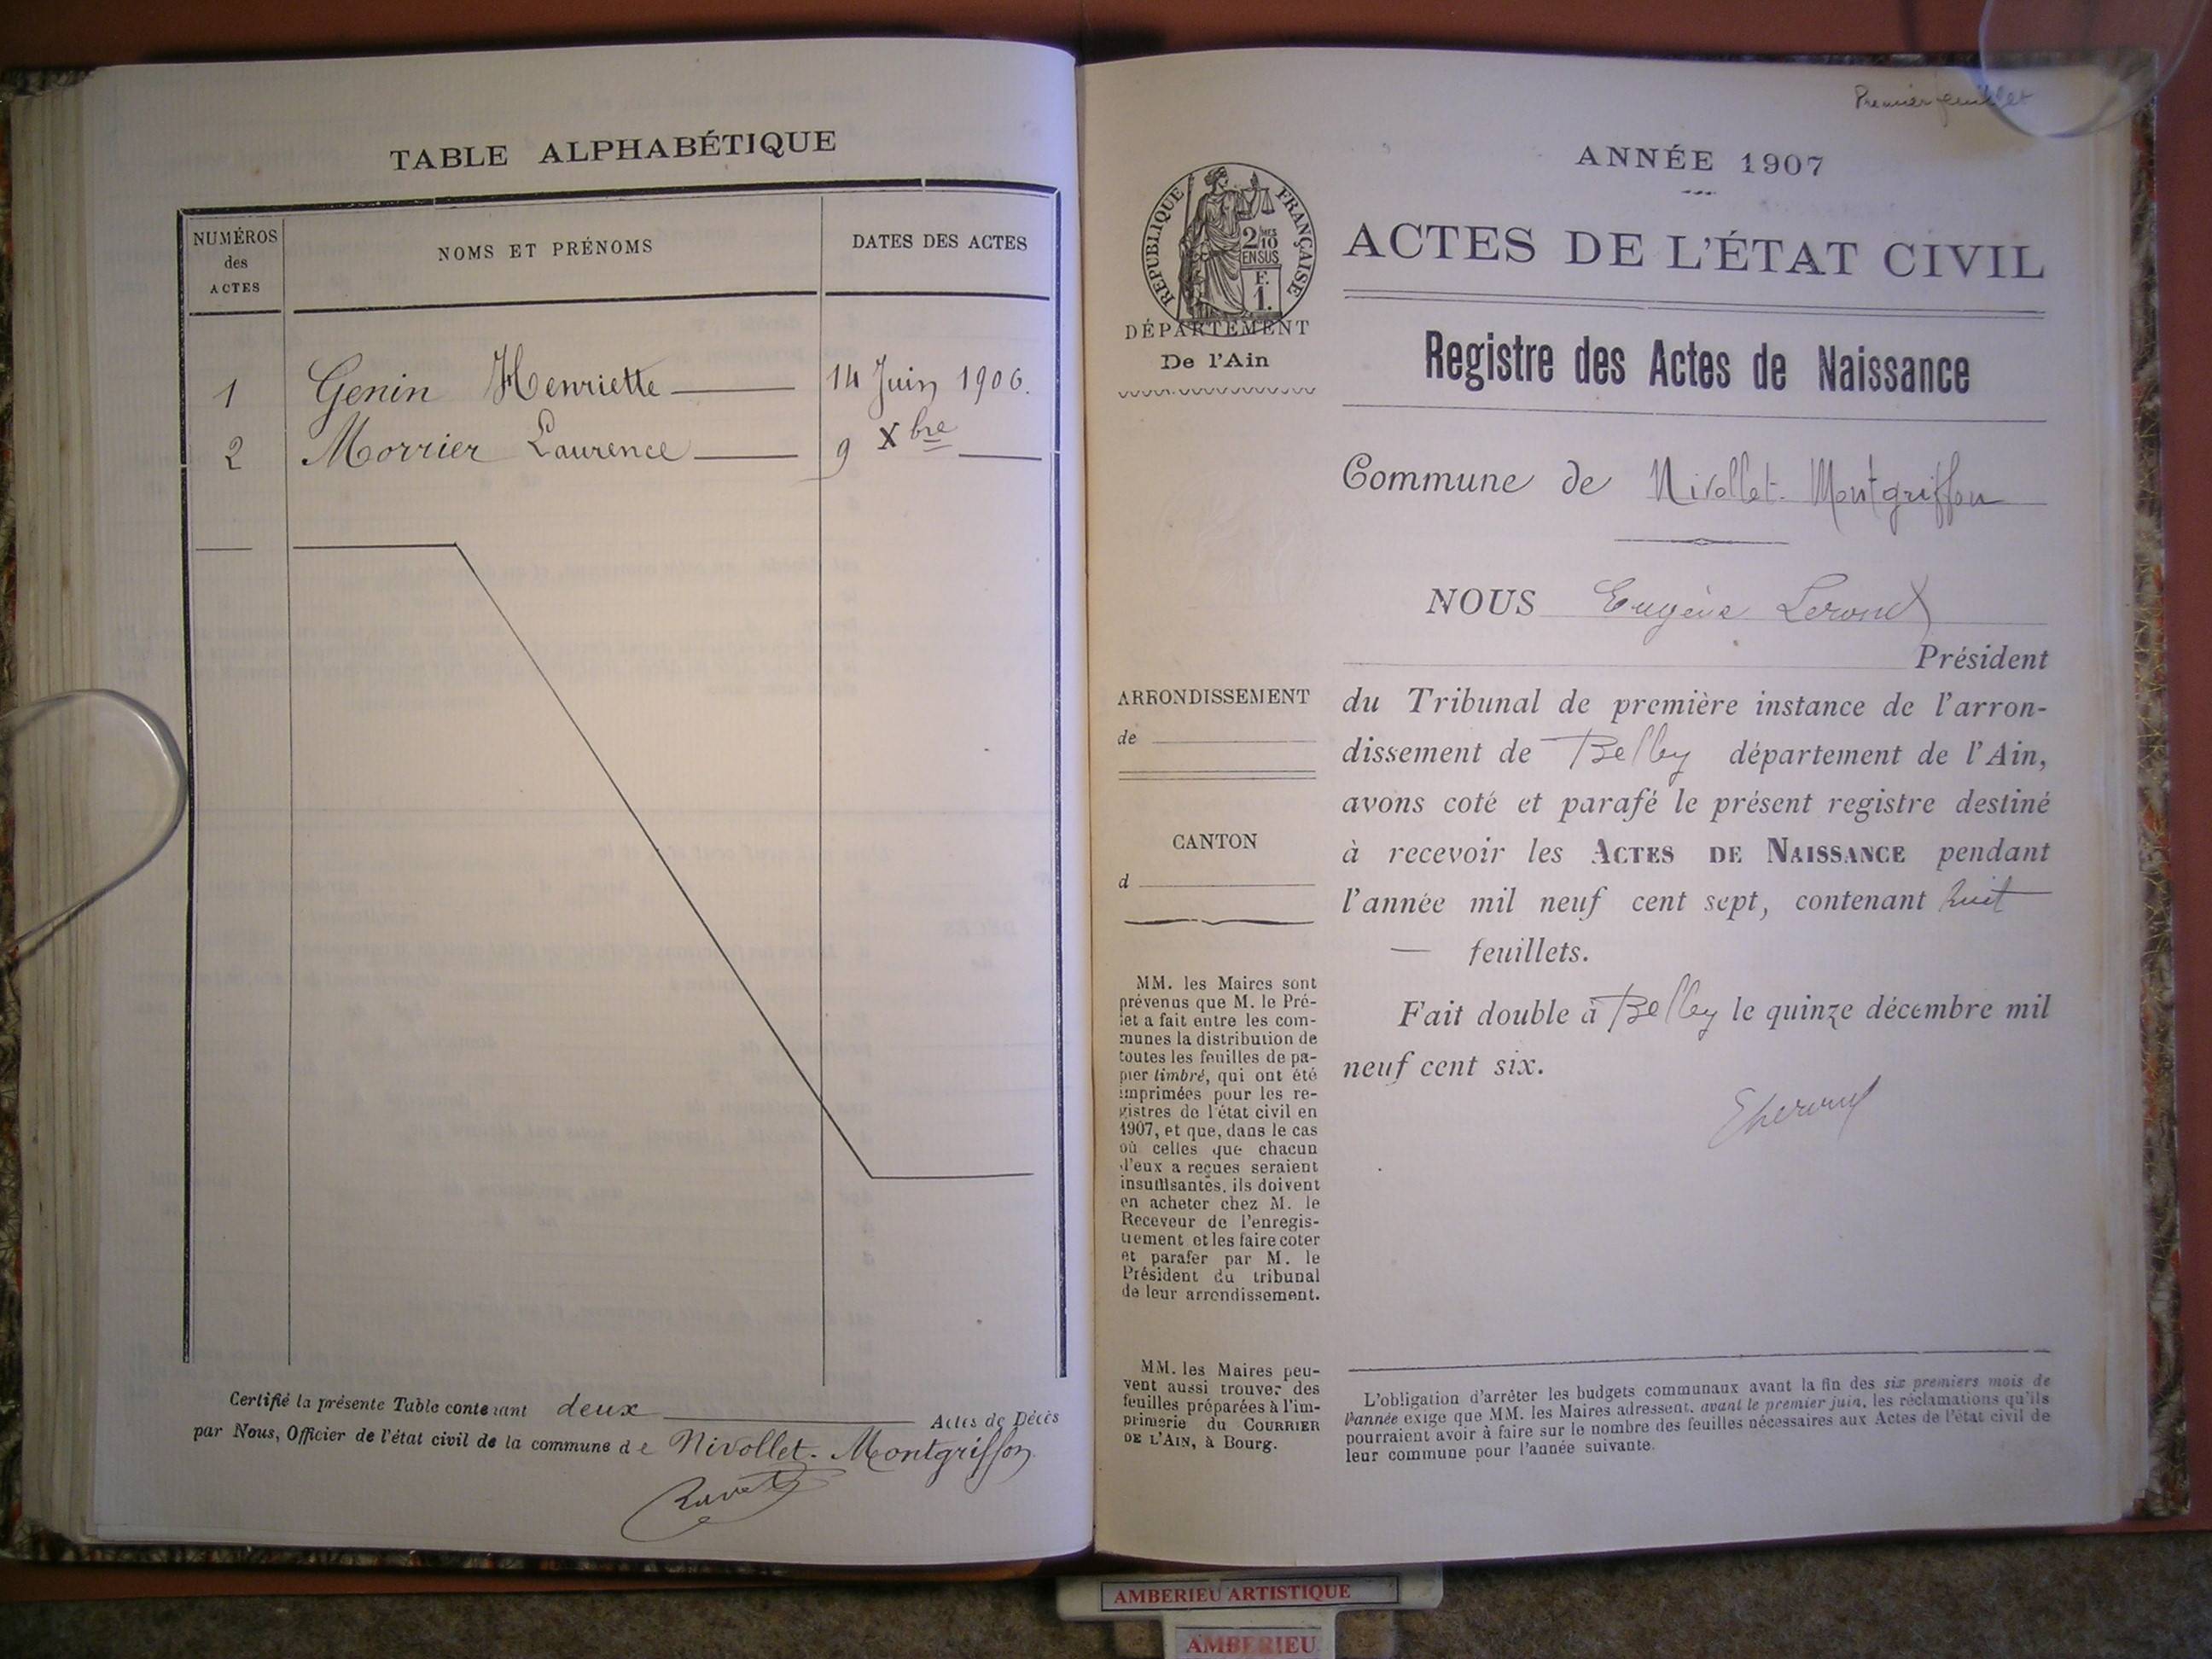 TABLE ALPHABÉTIQUE
NUMÉROS
des
ACTES
NOMS ET PRÉNOMS
DATES DES ACTES
1 Genin Henriette 14 Juin 1906.
2 Morrier Laurence 9 Xbre
Certifié la présente Table contenant deux Actes de Décès
par Nous, Officier de l'état civil de la commune de Nivollet-Montgriffon
Premier feuillet
ANNÉE 1907
ACTES DE L'ÉTAT CIVIL
RÉPUBLIQUE FRANÇAISE
2/10 MES
EN SUS
F.
1.
DÉPARTEMENT
De l'Ain
Registre des Actes de Naissance
Commune de Nivollet-Montgriffon
NOUS Eugène
Président
du Tribunal de première instance de l'arron-
dissement de Belley département de l'Ain,
avons coté et parafé le présent registre destiné
à recevoir les ACTES DE NAISSANCE pendant
l'année mil neuf cent sept, contenant huit
— feuillets.
Fait double à Belley le quinze décembre mil
neuf cent six.
ARRONDISSEMENT
de
CANTON
d
MM. les Maires sont
prévenus que M. le Pré-
fet a fait entre les com-
munes la distribution de
toutes les feuilles de pa-
pier timbré, qui ont été
imprimées pour les re-
gistres de l'état civil en
1907, et que, dans le cas
où celles que chacun
d'eux a reçues seraient
insuffisantes, ils doivent
en acheter chez M. le
Receveur de l'enregis-
trement et les faire coter
et parafer par M. le
Président du tribunal
de leur arrondissement.
MM. les Maires peu-
vent aussi trouver des
feuilles préparées à l'im-
primerie du COURRIER
DE L'AIN, à Bourg.
L'obligation d'arrêter les budgets communaux avant la fin des six premiers mois de
l'année exige que MM. les Maires adressent, avant le premier juin, les réclamations qu'ils
pourraient avoir à faire sur le nombre des feuilles nécessaires aux Actes de l'état civil de
leur commune pour l'année suivante.
AMBERIEU ARTISTIQUE
AMBERIEU